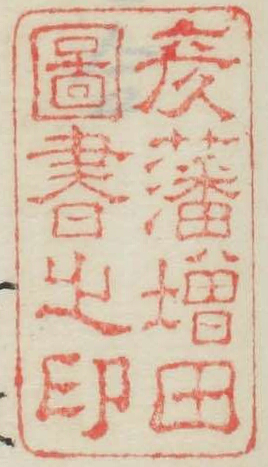 彦藩増田
圖書之印